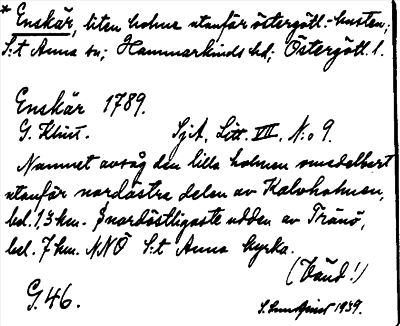 * Enskär, liten holme utanför östergötl.-kusten;
S:t Anna sn; Hammarkinds hd; Östergötl. l.
Enskär 1789.
G. Klint. SjA, Litt. VII, N:o 9.
Namnet avsåg den lilla holmen omedelbart
utanför nordöstra delen av Kalvholmen,
bel. 1,3 km. nordöstligaste udden av Tränö,
bel. 7 km. NNÖ S:t Anna kyrka.
(Vänd!)
G. 46. 1939.